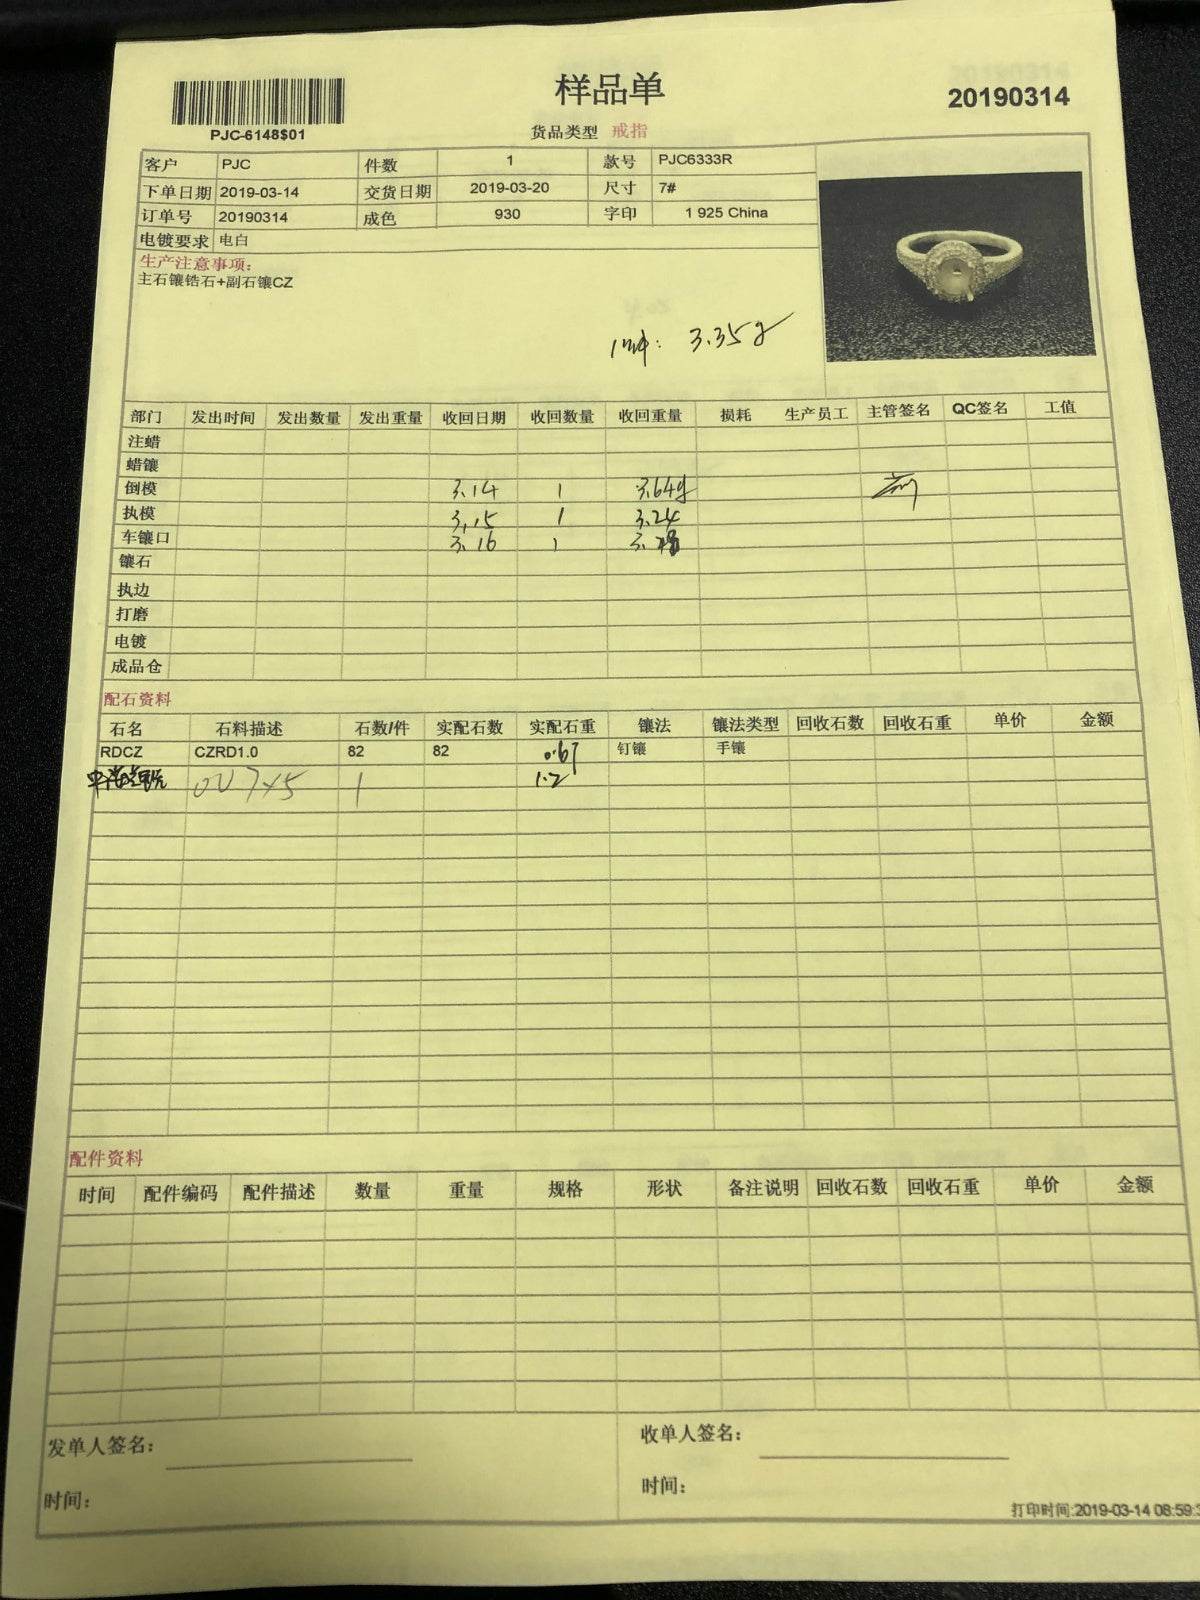 样品单
20190314
PJC-6148$01
货品类型 戒指
客户 PJC 件数 1 款号 PJC6333R
下单日期 2019-03-14 交货日期 2019-03-20 尺寸 7#
订单号 20190314 成色 930 字印 1 925 China
电镀要求 电白
生产注意事项:
主石镶锆石+副石镶CZ
3.35g
部门 发出时间 发出数量 发出重量 收回日期 收回数量 收回重量 损耗 生产员工 主管签名 QC签名 工值
注蜡
蜡镶
倒模 3.14 1 3.64g
执模 3.15 1 3.24
车镶口 3.16 1
镶石
执边
打磨
电镀
成品仓
配石资料
石名 石料描述 石数/件 实配石数 实配石重 镶法 镶法类型 回收石数 回收石重 单价 金额
RDCZ CZRD1.0 82 82 0.67 钉镶 手镶
1 1.2
配件资料
时间 配件编码 配件描述 数量 重量 规格 形状 备注说明 回收石数 回收石重 单价 金额
发单人签名: 收单人签名:
时间: 时间:
打印时间:2019-03-14 08:59: